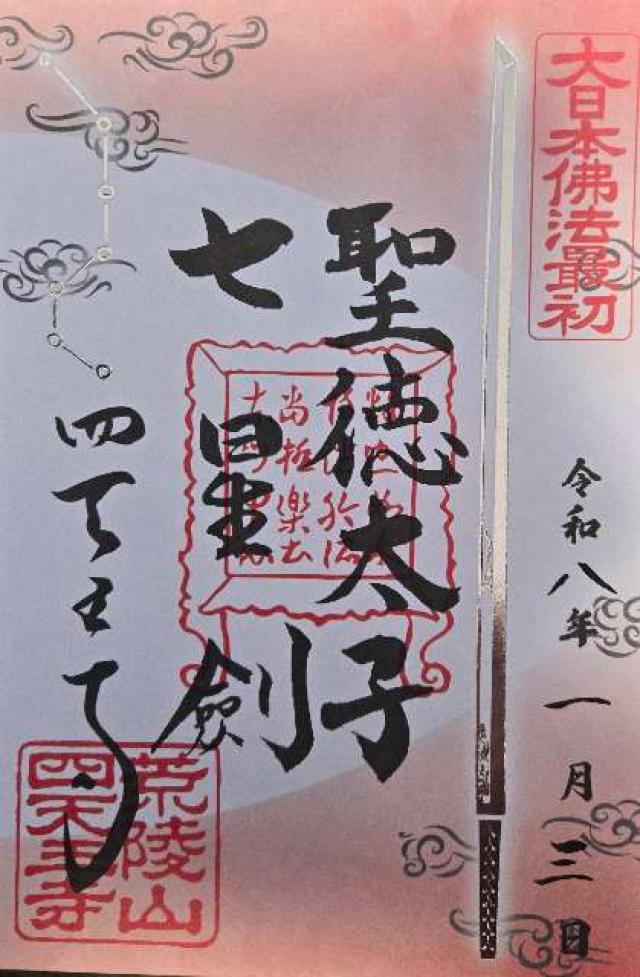 大日本佛法最初
令和八年一月三日
聖徳太子
七星劔
四天王寺
荒陵山
四天王寺